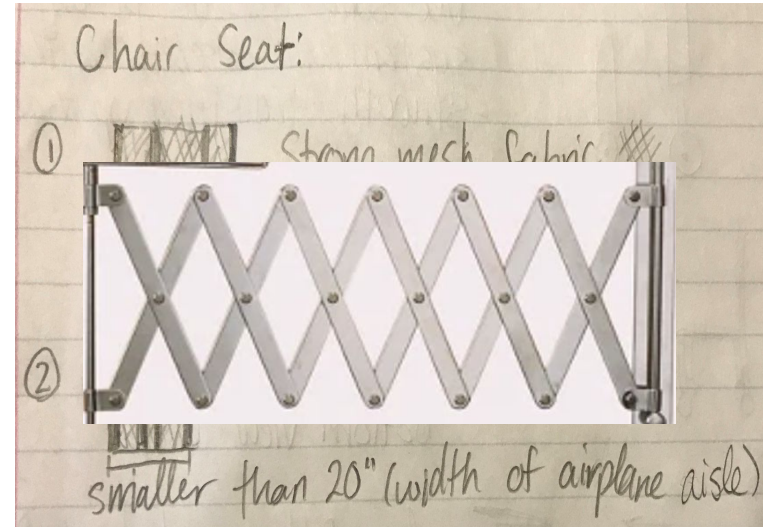 Chair Seat:
① Strong mesh fabric
②
smaller than 20" (width of airplane aisle)